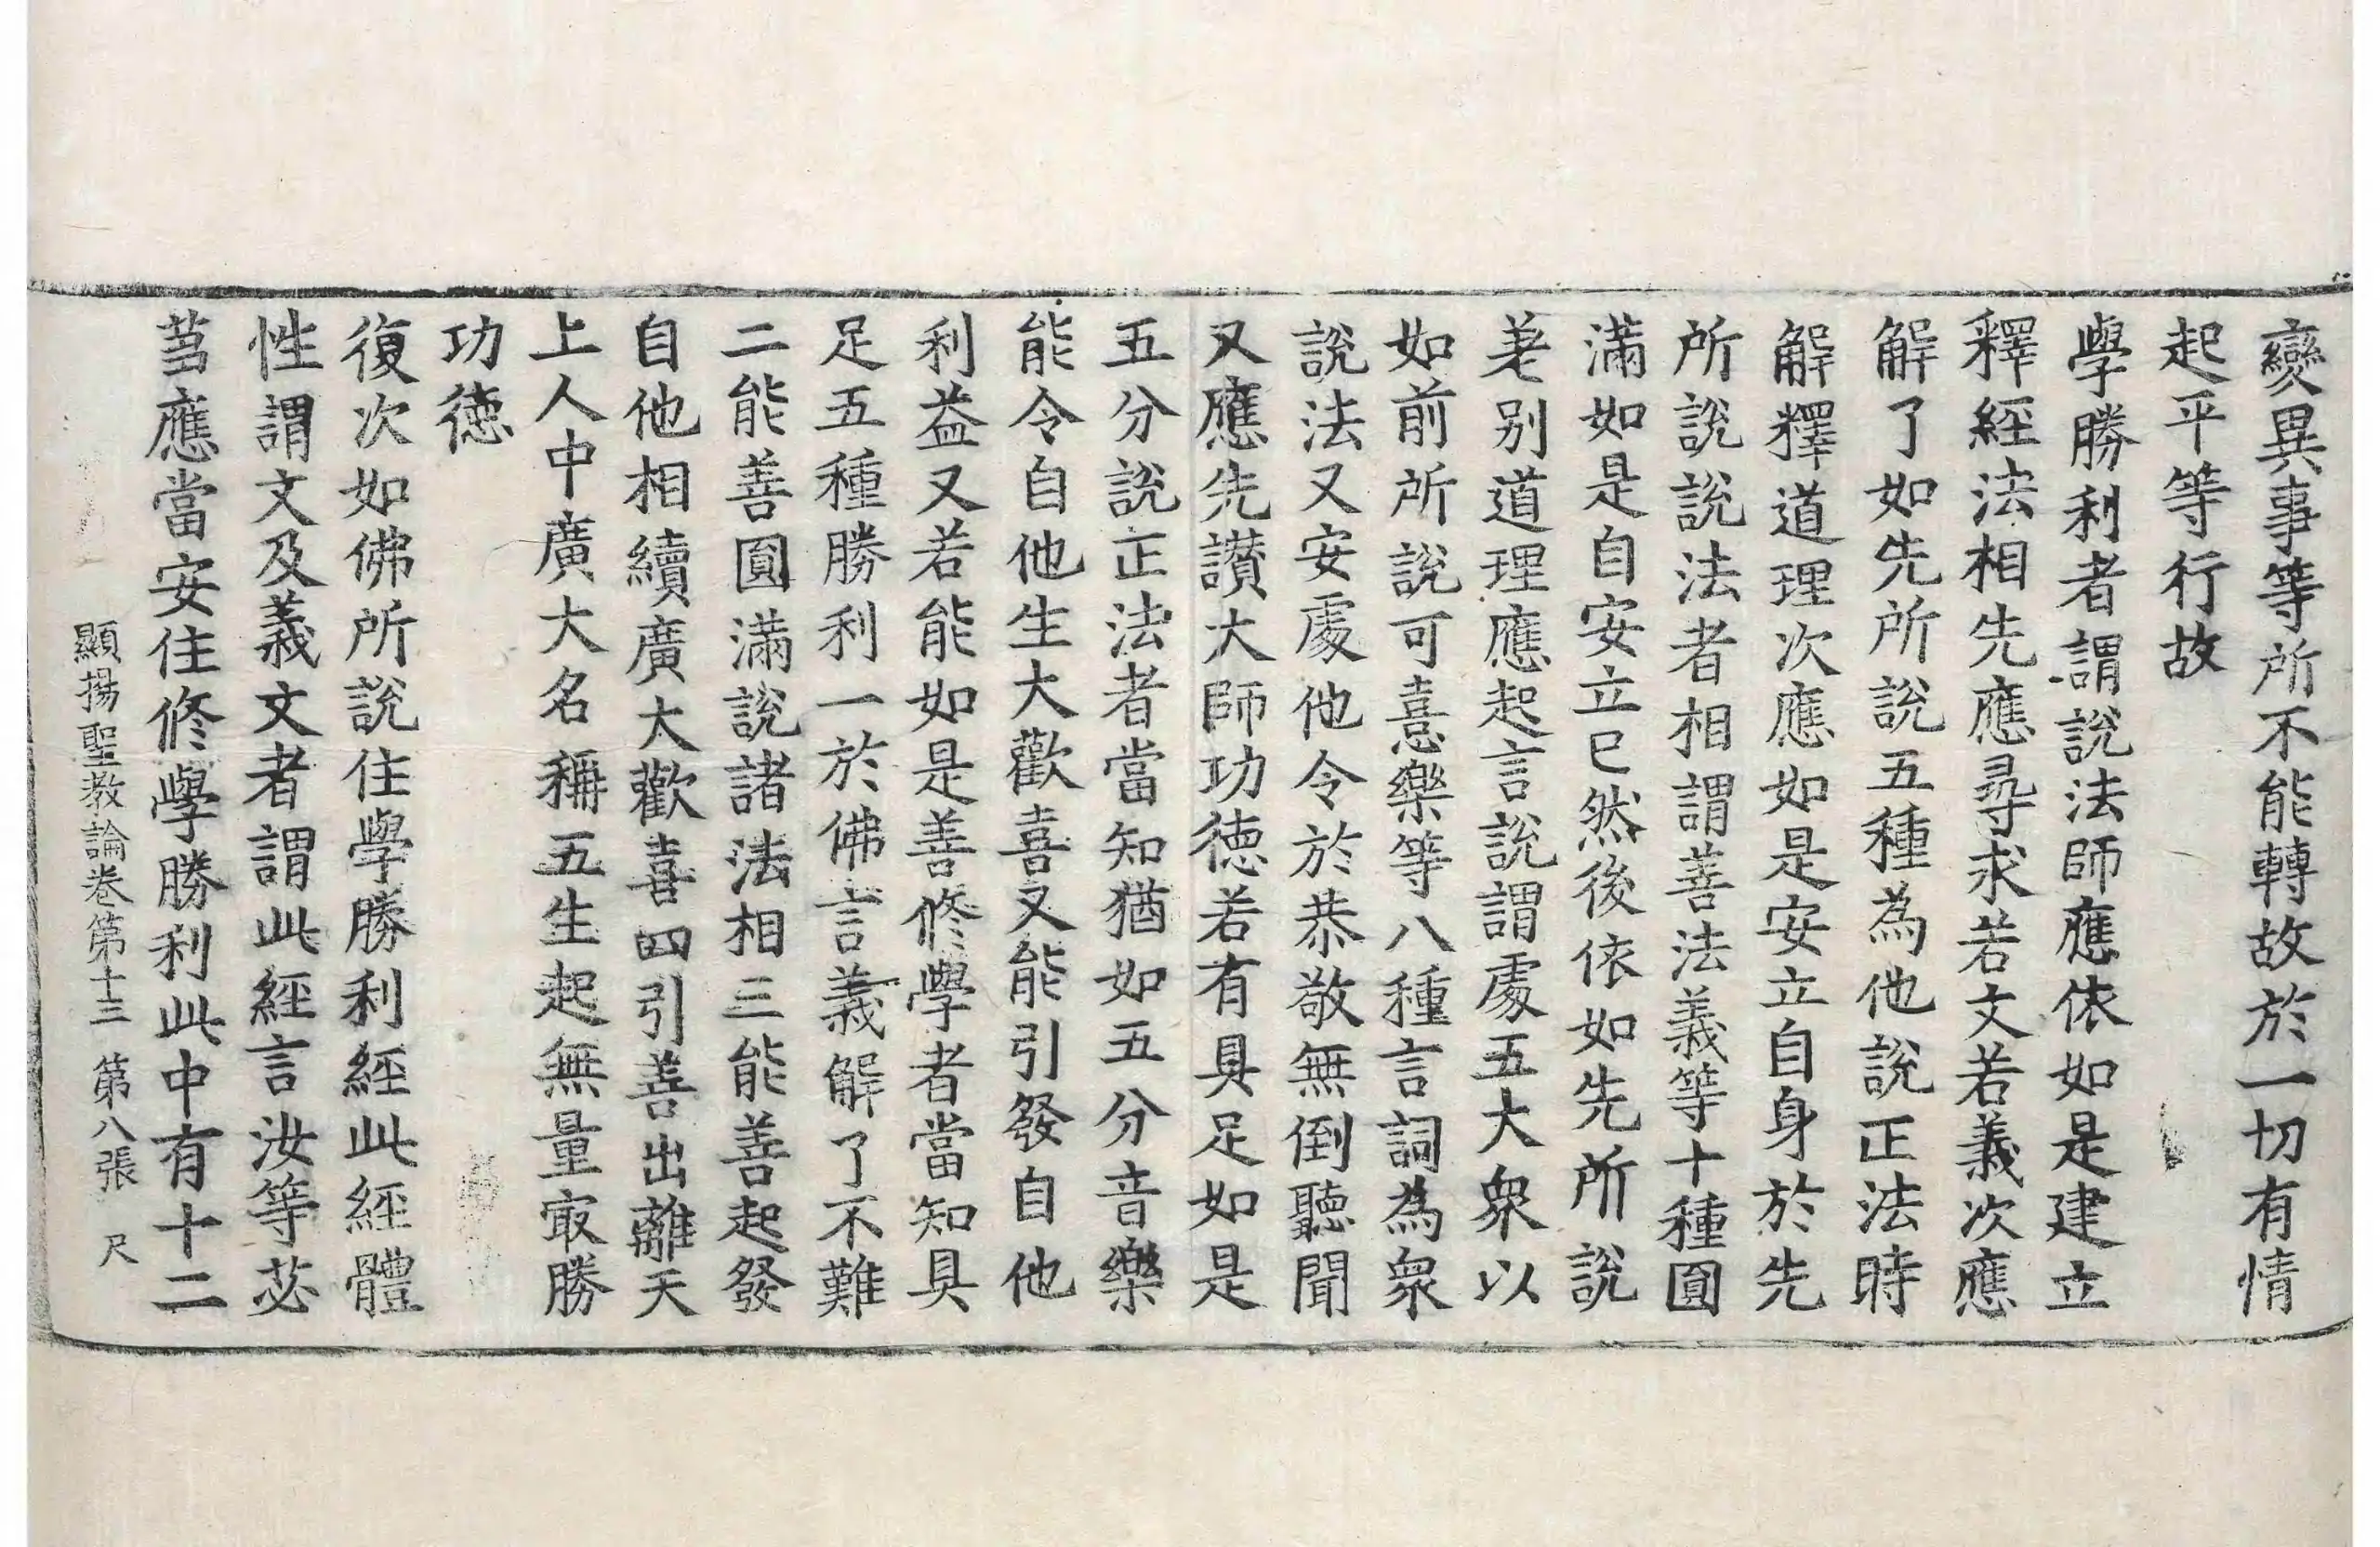 變異事等所不能轉故於一切有情
起平等行故
學勝利者謂說法師應依如是建立
釋經法相先應尋求若文若義次應
解了如先所說五種為他說正法時
解釋道理次應如是安立自身於先
所說說法者相謂善法義等十種圓
滿如是自安立已然後依如先所說
差別道理應起言說謂處五大衆以
如前所說可憙樂等八種言詞為衆
說法又安處他令於恭敬無倒聽聞
又應先讃大師功德若有具足如是
五分說正法者當知猶如五分音樂
能令自他生大歡喜又能引發自他
利益又若能如是善修學者當知具
足五種勝利一於佛言義解了不難
二能善圓滿說諸法相三能善起發
自他相續廣大歡喜四引善出離天
上人中廣大名稱五生起無量㝡勝
功德
復次如佛所說住學勝利經此經體
性謂文及義文者謂此經言汝等苾
芻應當安住修學勝利此中有十二
顯揚聖教論卷第十三 第八張 尺